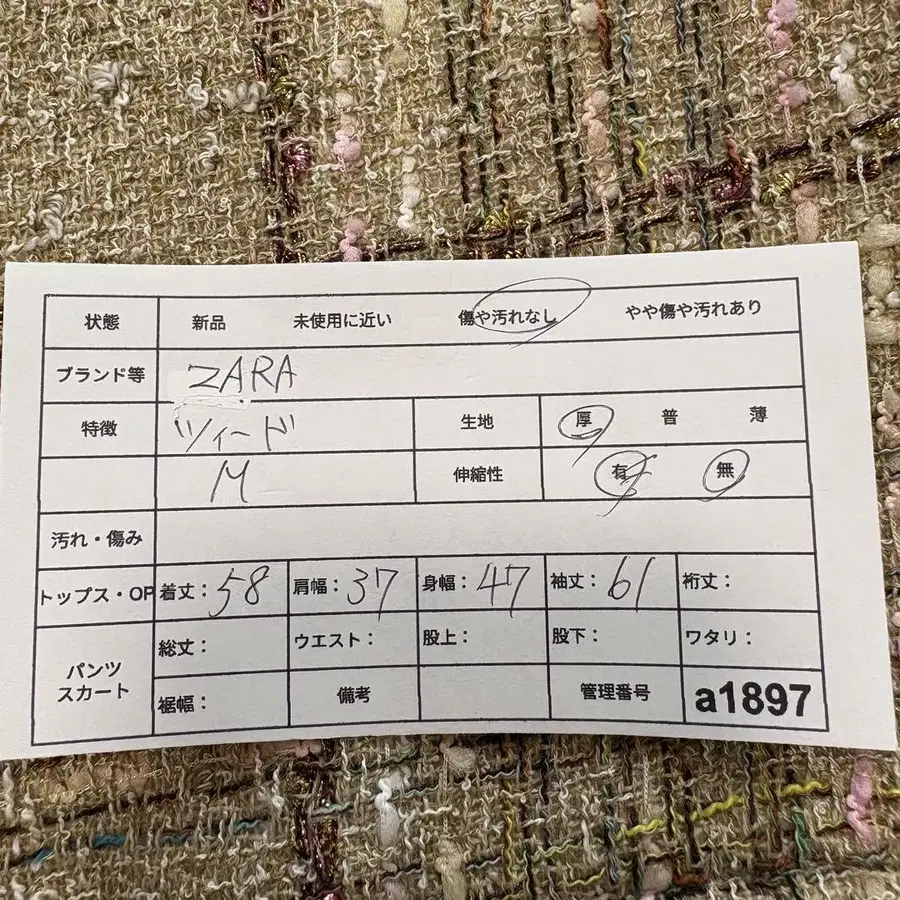 状態 新品 未使用に近い 傷や汚れなし やや傷や汚れあり
ブランド等 ZARA
特徴 ツイード 生地 厚 普 薄
M 伸縮性 有 無
汚れ・傷み
トップス・OP 着丈：58 肩幅：37 身幅：47 袖丈：61 裄丈：
パンツ スカート 総丈： ウエスト： 股上： 股下： ワタリ：
裾幅： 備考 管理番号 a1897